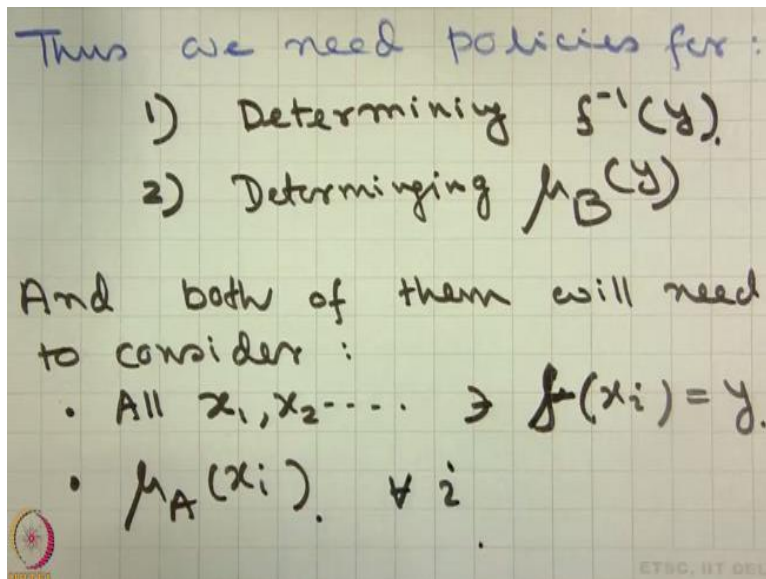 Thus we need policies for :
1) Determining f⁻¹(y).
2) Determinging μ_B(y)
And both of them will need
to consider :
• All x₁, x₂ ---- ∋ f(xᵢ) = y.
• μ_A(xᵢ). ∀ i
ETSC, IIT DEL